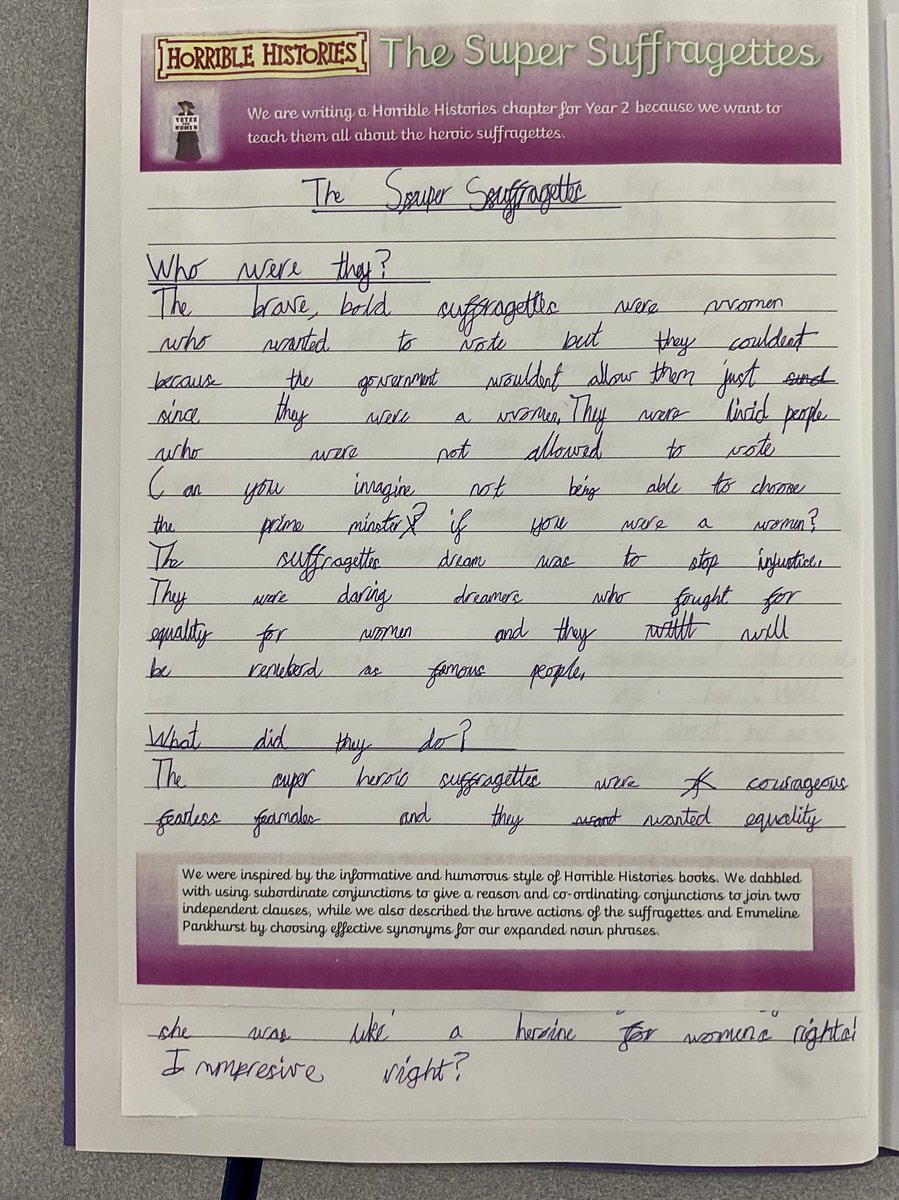 HORRIBLE HISTORIES The Super Suffragettes
VOTES FOR WOMEN
We are writing a Horrible Histories chapter for Year 2 because we want to
teach them all about the heroic suffragettes.
The Super Suffragettes
Who were they?
The brave, bold suffragettes were women
who wanted to vote but they couldent
because the government wouldent allow them just
since they were a women. They were livid people
who were not allowed to vote
Can you imagine not being able to choose
the prime minster? if you were a women?
The suffragettes dream was to stop injustice.
They were daring dreamers who fought for
equality for women and they will
be remebord as famous people.
What did they do?
The super heroic suffragettes were courageous
fearless feamales and they want wanted equality
We were inspired by the informative and humorous style of Horrible Histories books. We dabbled
with using subordinate conjunctions to give a reason and co-ordinating conjunctions to join two
independent clauses, while we also described the brave actions of the suffragettes and Emmeline
Pankhurst by choosing effective synonyms for our expanded noun phrases.
she was like a heroine for women's rights!
Immpresive right?